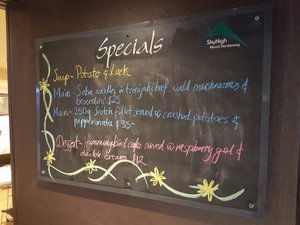 Specials
SkyHigh
Mount Dandenong
Soup - Potato & Leek
Main - Soba noodles w teriyaki beef, wild mushrooms &
broccolini $25
Main - 250g Scotch fillet served w crushed potatoes &
pepperonata $35-
Dessert - hummingbird cake served w raspberry gel &
double cream $12